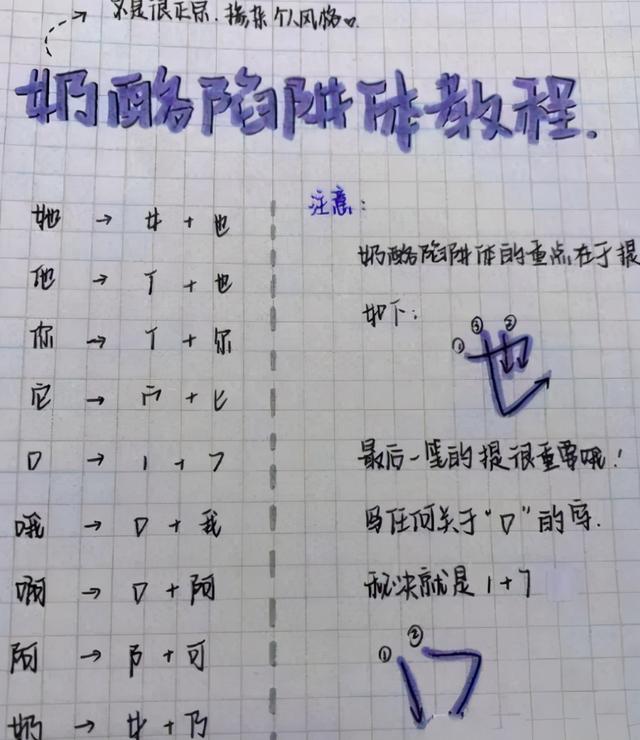 不是很正宗，掺杂个人风格♡
奶酪陷阱体教程.
她 → 女 + 也
他 → 亻 + 也
你 → 亻 + 尔
它 → 宀 + 匕
口 → 1 + 7
哦 → 口 + 我
啊 → 口 + 阿
阿 → 阝 + 可
奶 → 女 + 乃
注意：
奶酪陷阱体的重点在于提
如下：
① ③ ②
也
最后一笔的提很重要哦！
写任何关于“口”的字.
秘诀就是 1+7
① ②
口